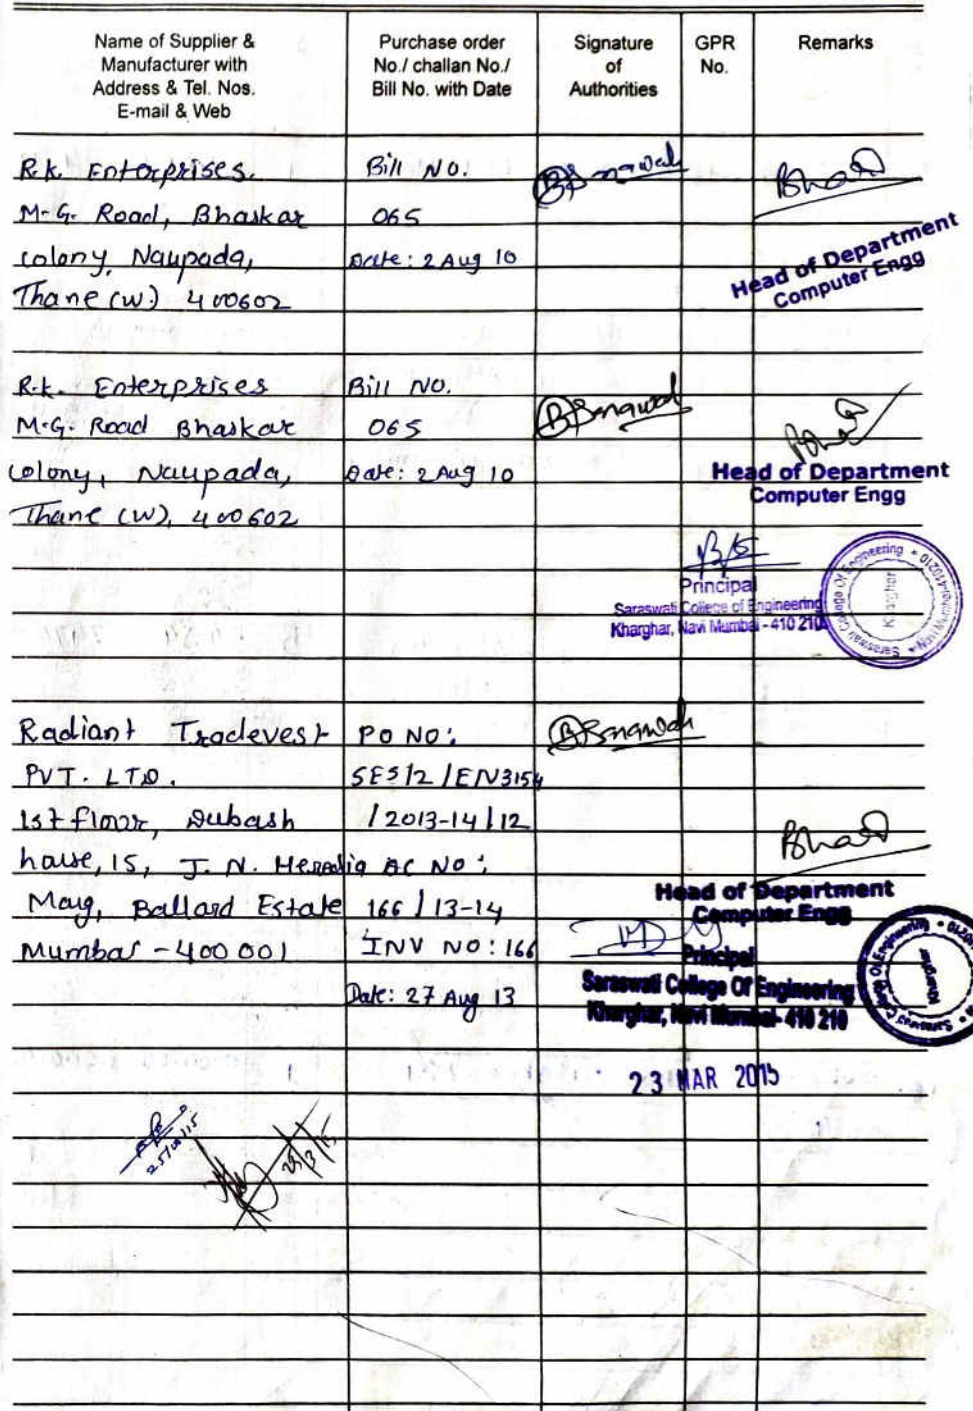 Name of Supplier &
Manufacturer with
Address & Tel. Nos.
E-mail & Web
Purchase order
No./ challan No./
Bill No. with Date
Signature
of
Authorities
GPR
No.
Remarks
R.K. Enterprises.
M.G. Road, Bhaskar
colony, Naupada,
Thane (W.) 400602
Bill NO.
065
Date: 2 Aug 10
Head of Department
Computer Engg
R.K. Enterprises
M.G. Road Bhaskar
colony, Naupada,
Thane (W), 400602
Bill NO.
065
Date: 2 Aug 10
Head of Department
Computer Engg
Principal
Saraswati College of Engineering
Kharghar, Navi Mumbai - 410 210
Saraswati College Of Engineering
Kharghar
Radiant Tradevest
PVT. LTD.
1st floor, Dubash
house, 15, J. N. Heredia
Marg, Ballard Estate
Mumbai - 400 001
PO NO:
SES/2/EN3154
/2013-14/12
AC NO:
166/13-14
INV NO: 166
Date: 27 Aug 13
Head of Department
Computer Engg
Principal
Saraswati College Of Engineering
Kharghar, Navi Mumbai - 410 210
Saraswati College Of Engineering
Kharghar
23 MAR 2015
25/3/15